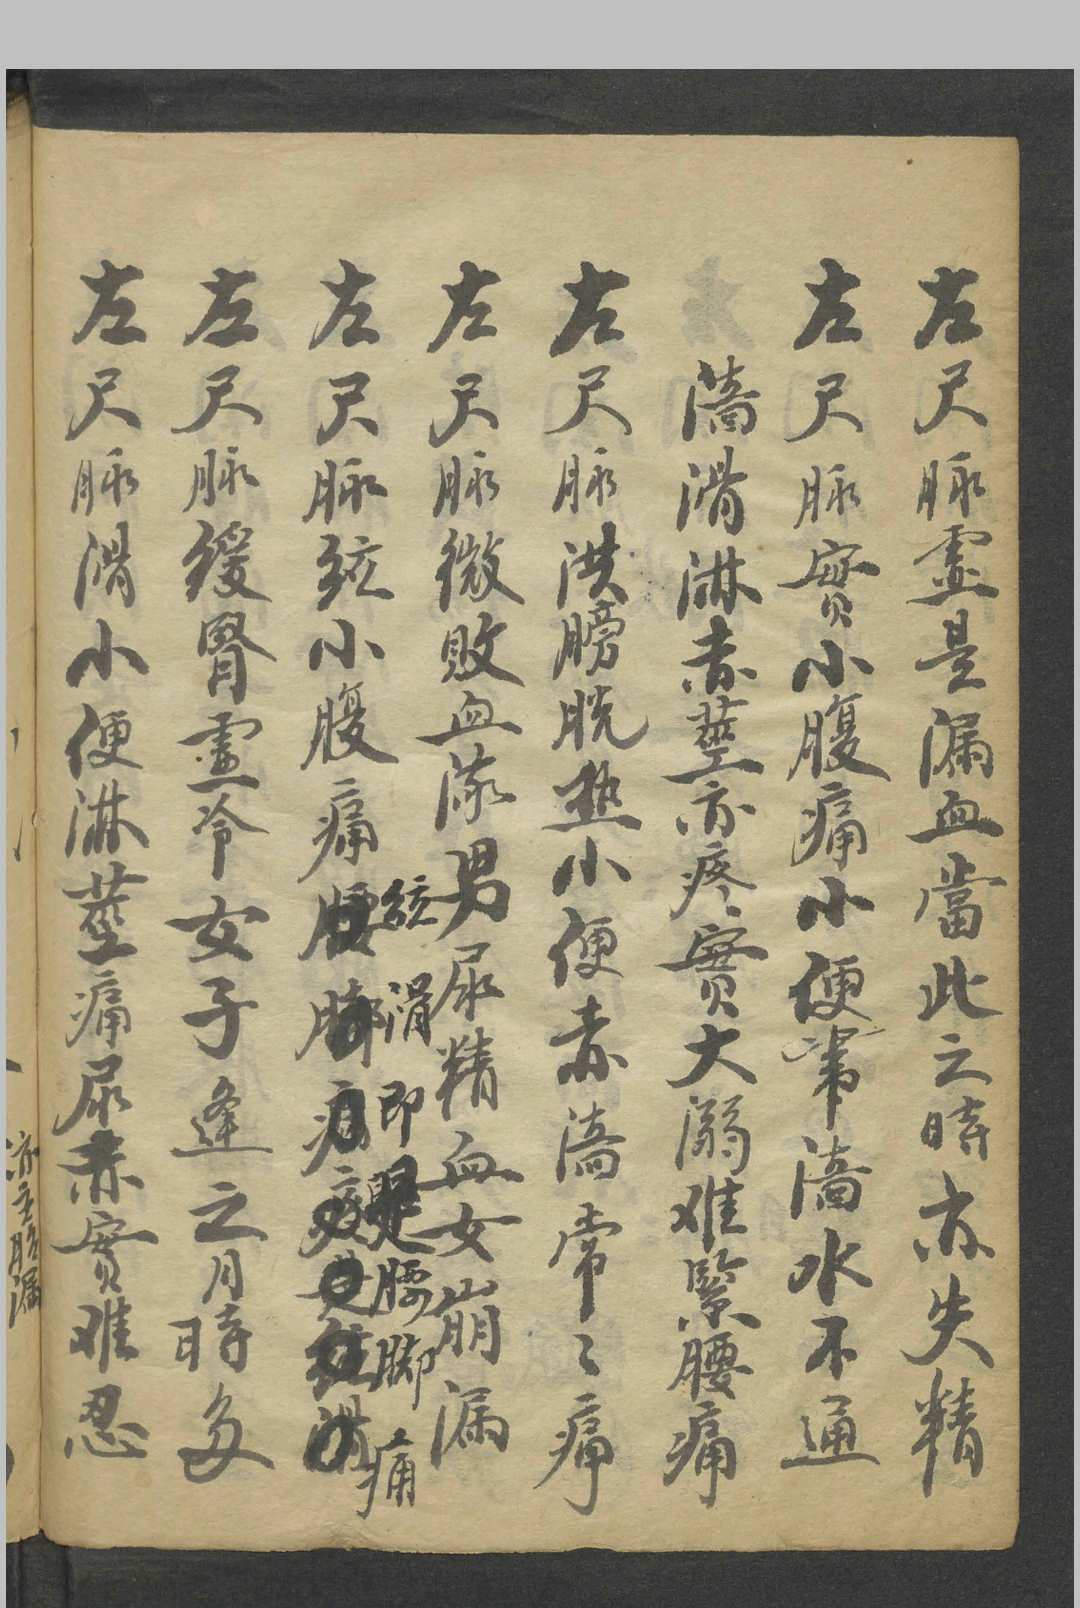 左尺脉虛是漏血當此之時亦失精
左尺脉實小腹痛小便常濇水不通
濇滑淋赤莖亦疼實大溺难緊腰痛
左尺脉洪膀胱熱小便赤濇常〻痛
左尺脉微敗血濛男尿精血女崩漏
左尺脉弦小腹痛腰脚
絃滑即是腰脚痛
左尺脉緩腎虛冷女子逢之月時多
左尺脉滑小便淋莖痛尿赤實难忍